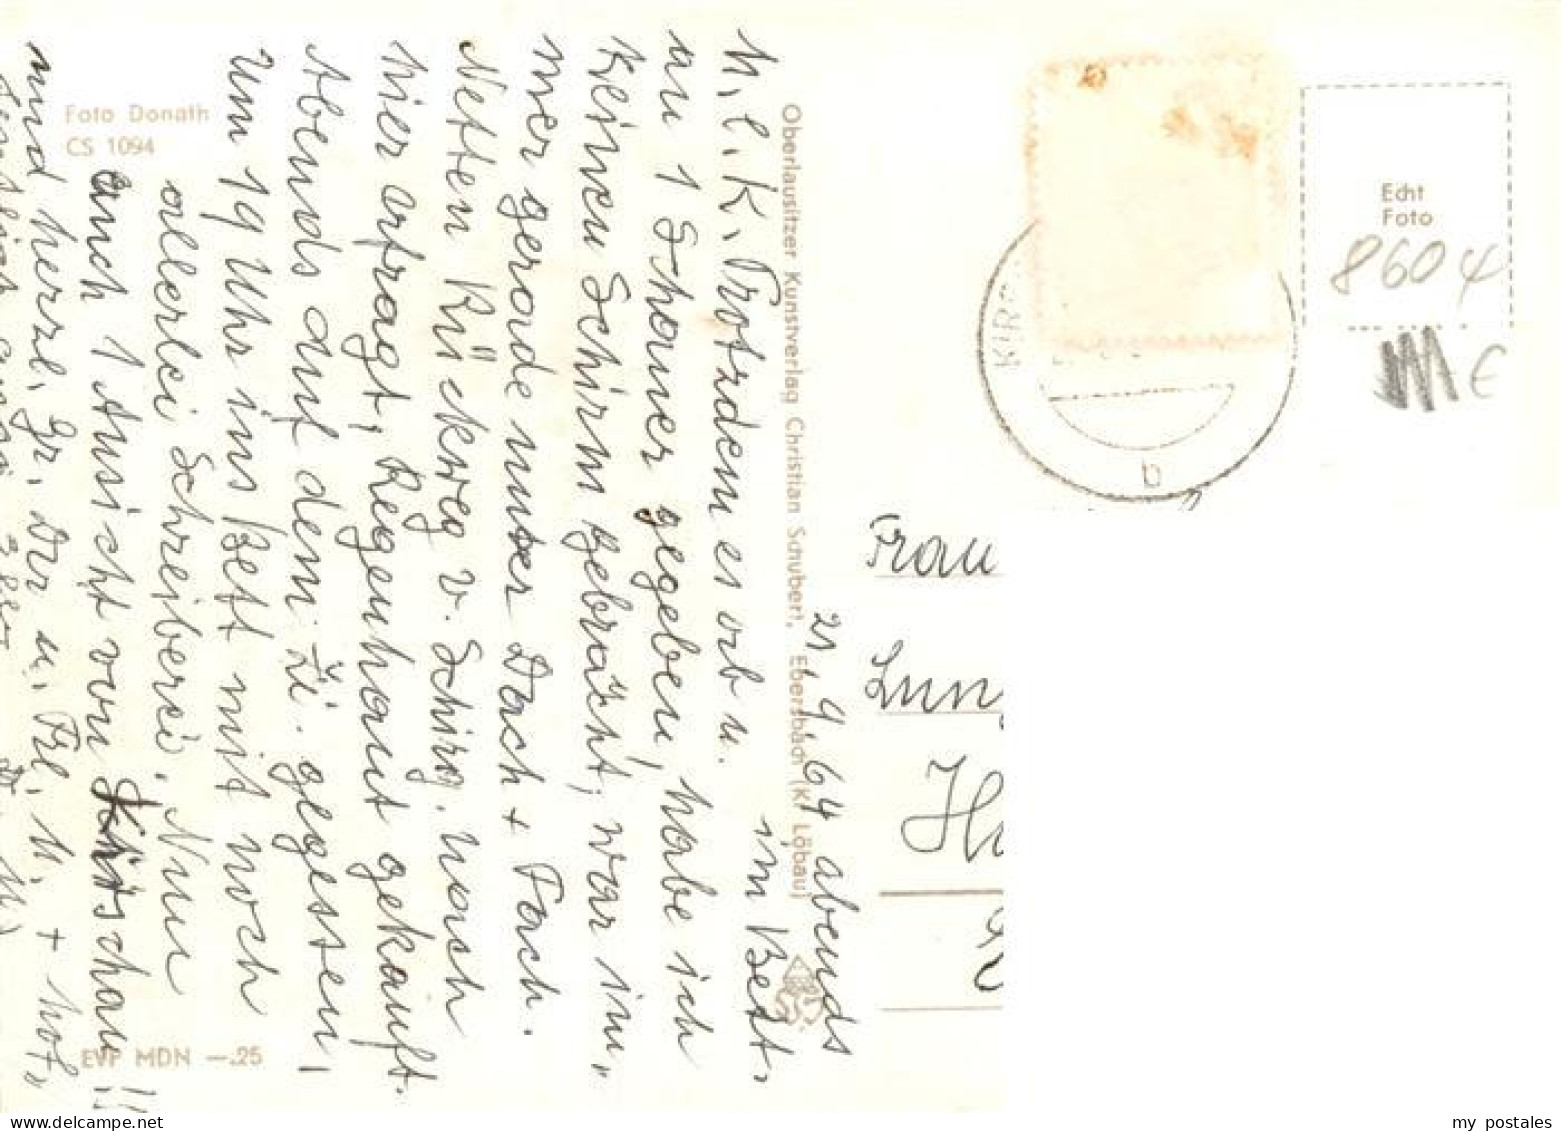 21.9.64 abends
im Bett.
M. l. K. Trotzdem es ab u.
zu 1 Schauer gegeben, habe ich
keinen Schirm gebracht, war im„
mer gerade unter Dach + Fach.
Netten Rückweg v. Schirg. nach
hier erfragt, Regenhaut gekauft.
Abends auf dem Zi. gegessen,
Um 19 Uhr ins Bett mit noch
allerlei Schreiberei. Nun
auch 1 Ansicht von Kirschau!!
und herzl. Gr. Dir u. Frl. M. + hof„
Foto Donath
CS 1094
EVP MDN —.25
Oberlausitzer Kunstverlag Christian Schubert, Ebersbach (Kr. Löbau)
Echt
Foto
8604
€
KIR
b
Frau
my postales